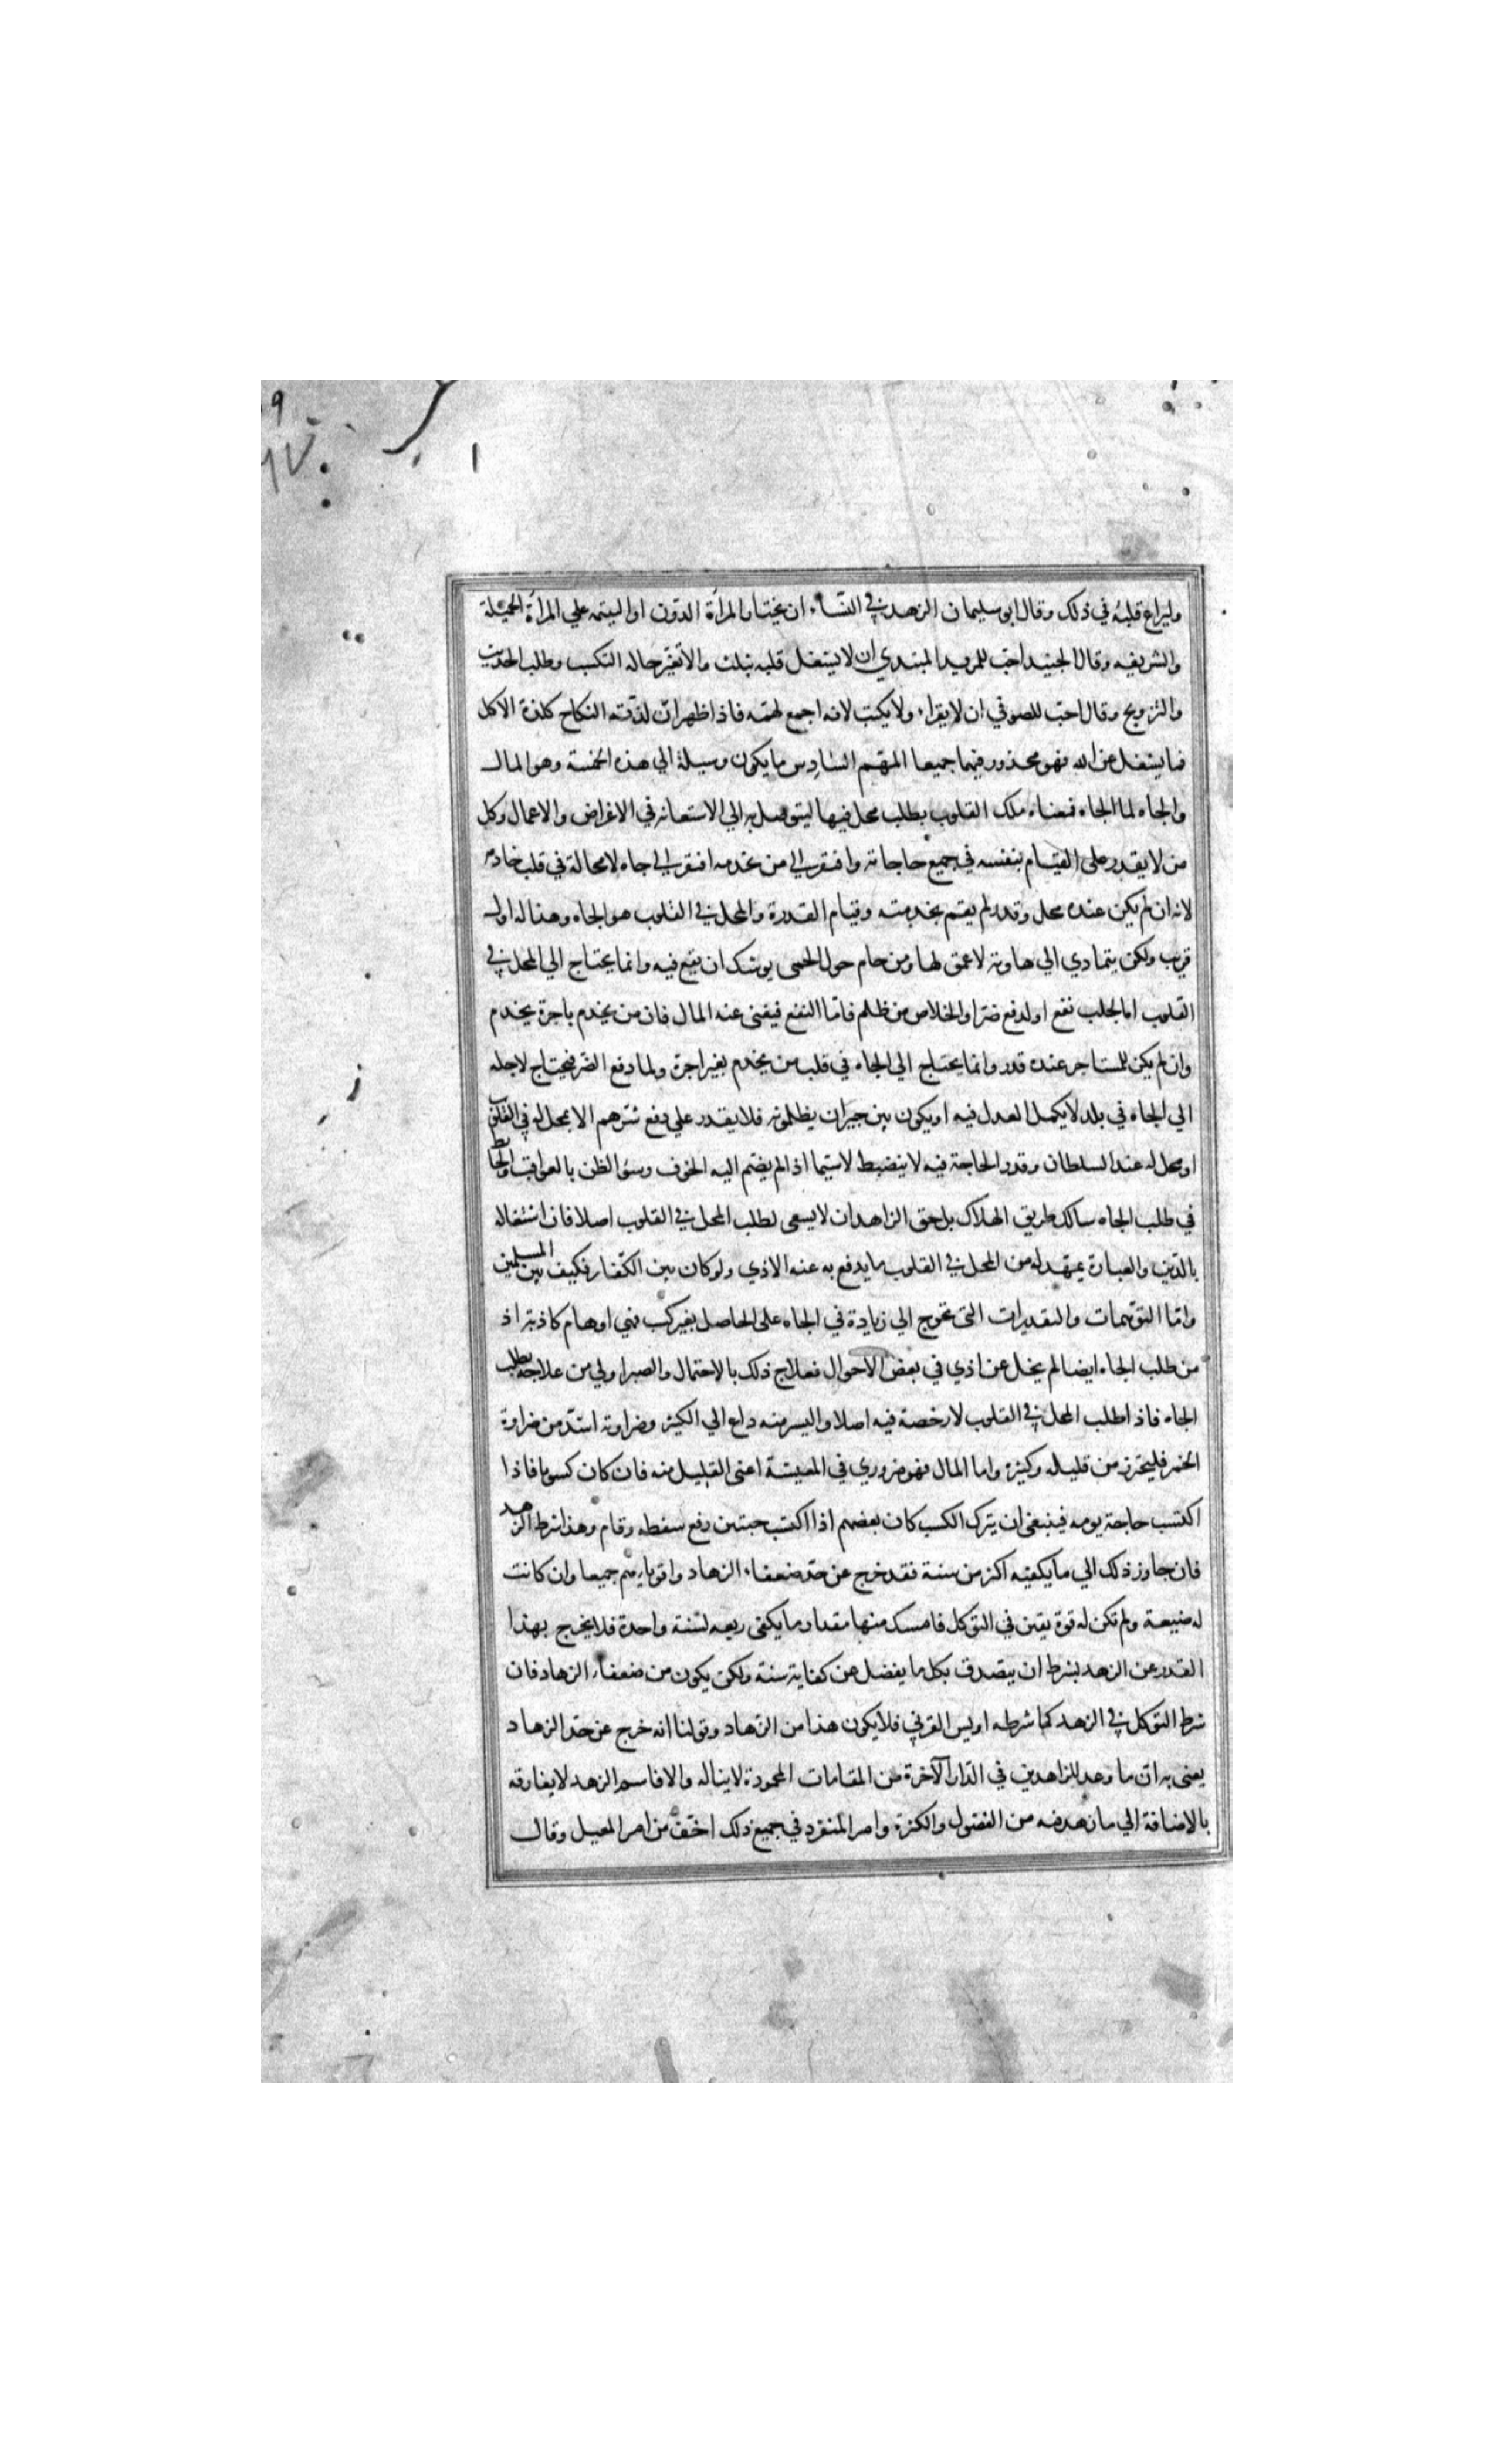 وليراع قلبه في ذلك وقال ابو سليمان الزهد في النساء ان يختار المرأة الدون او اليتيمه علي المرأة الجميلة
والشريفيه وقال الجنيد احب للمريد المبتدي ان لا يشغل قلبه بثلث والا تغير حاله التكسب وطلب الحديث
والتزويج وقال احب للصوفي ان لا يقراء ولا يكتب لانه اجمع لهمه فاذا ظهر ان لذته النكاح كلذة الاكل
فما يشغل عن الله فهو محذور فيهما جميعا المهم السادس ما يكون وسيلة الي هذه الخمسة وهو المال
والجاه اما الجاه فمعناه ملك القلوب بطلب محل فيها ليتوصل به الي الاستعانه في الاغراض والاعمال وكل
من لا يقدر على القيام بنفسه في جميع حاجاته وافتقر الي من يخدمه افتقر الي جاه لا محالة في قلب خادمه
لانه ان لم يكن عنده محل وقدر لم يقم بخدمته وقيام القدرة والمحل في القلوب هو الجاه وهذا له اول
قريب ولكن يتمادي الي هاويه لا عمق لها ومن حام حول الحمى يوشك ان يقع فيه وانما يحتاج الي المحل في
القلوب اما لجلب نفع او لدفع ضر او الخلاص من ظلم فاما النفع فيغنى عنه المال فان من يخدم باجرة يخدم
وان لم يكن للمستاجر عنده قدر وانما يحتاج الي الجاه في قلب من يخدم بغير اجرة واما دفع الضر فيحتاج لاجله
الي الجاه في بلد لا يكمل العدل فيه او يكون بين جيران يظلمونه فلا يقدر علي دفع شرهم الا بمحل له في القلوب
او محل له عند السلطان وقدر الحاجة فيه لا ينضبط لاسيما اذا لم يضم اليه الخوف وسؤ الظن بالعواقب والخائط
في طلب الجاه سالك طريق الهلاك بل حق الزاهد ان لا يسعى لطلب المحل في القلوب اصلا فان اشتغاله
بالدين والعبادة يمهد له من المحل في القلوب ما يدفع به عنه الاذي ولو كان بين الكفار فكيف بين المسلمين
واما التوهمات والتقديرات التي تحوج الي زيادة في الجاه على الحاصل بغير كسب فهي اوهام كاذبة اذ
من طلب الجاه ايضا لم يخل عن اذي في بعض الاحوال فعلاج ذلك بالاحتمال والصبر اولي من علاجه بطلب
الجاه فاذا طلب المحل في القلوب لا رخصة فيه اصلا واليسير منه داع الي الكثير وضراوته اشد من ضراوة
الخمر فليحترز من قليله وكثيره واما المال فهو ضروري في المعيشة اعني القليل منه فان كان كسوبا فاذا
اكتسب حاجة يومه فينبغي ان يترك الكسب كان بعضهم اذا اكتسب حبتين رفع سفطه وقام وهذا شرط الزهد
فان جاوز ذلك الي ما يكفيه اكثر من سنة فقد خرج عن حد ضعفاء الزهاد واقويايهم جميعا وان كانت
له ضيعة ولم تكن له قوة يقين في التوكل فامسك منها مقدار ما يكفى ريعه لسنة واحدة فلا يخرج بهذا
القدر عن الزهد بشرط ان يتصدق بكل ما يفضل عن كفاية سنة ولكن يكون من ضعفاء الزهاد فان
شرط التوكل في الزهد كما شرطه اويس القرني فلا يكون هذا من الزهاد وقولنا انه خرج عن حد الزهاد
يعني به ان ما وعد للزاهدين في الدار الآخرة من المقامات المحمودة لا يناله والا فاسم الزهد لا يفارقه
بالاضافة الي ما زهد فيه من الفضول والكثرة وامر المنفرد في جميع ذلك اخف من امر المعيل وقال